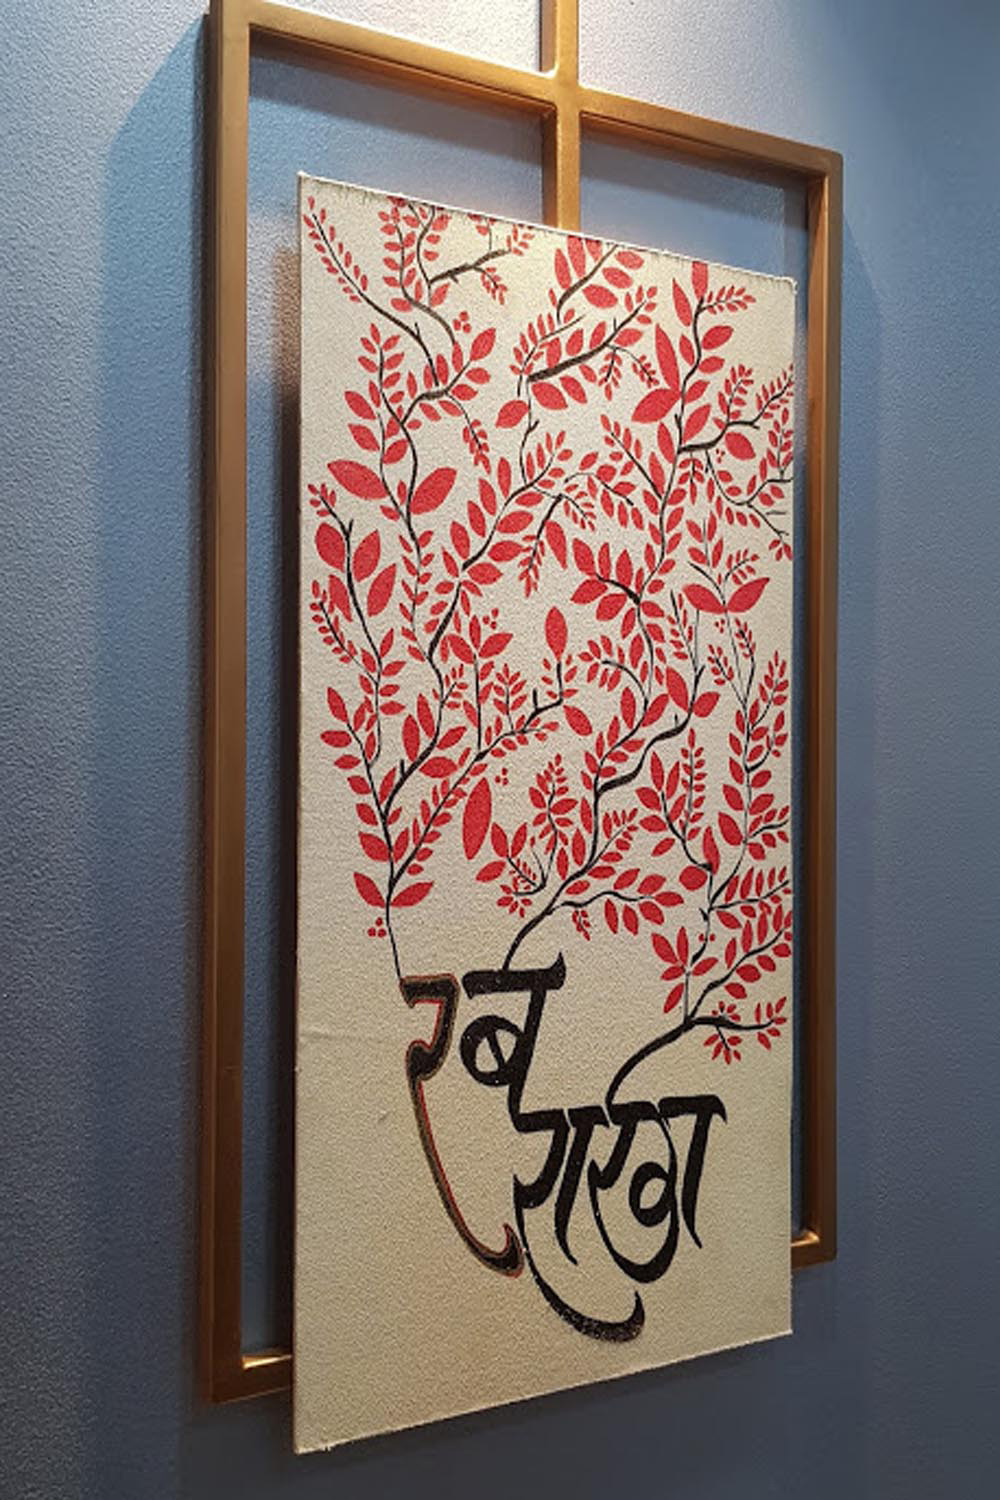 रब
राखा